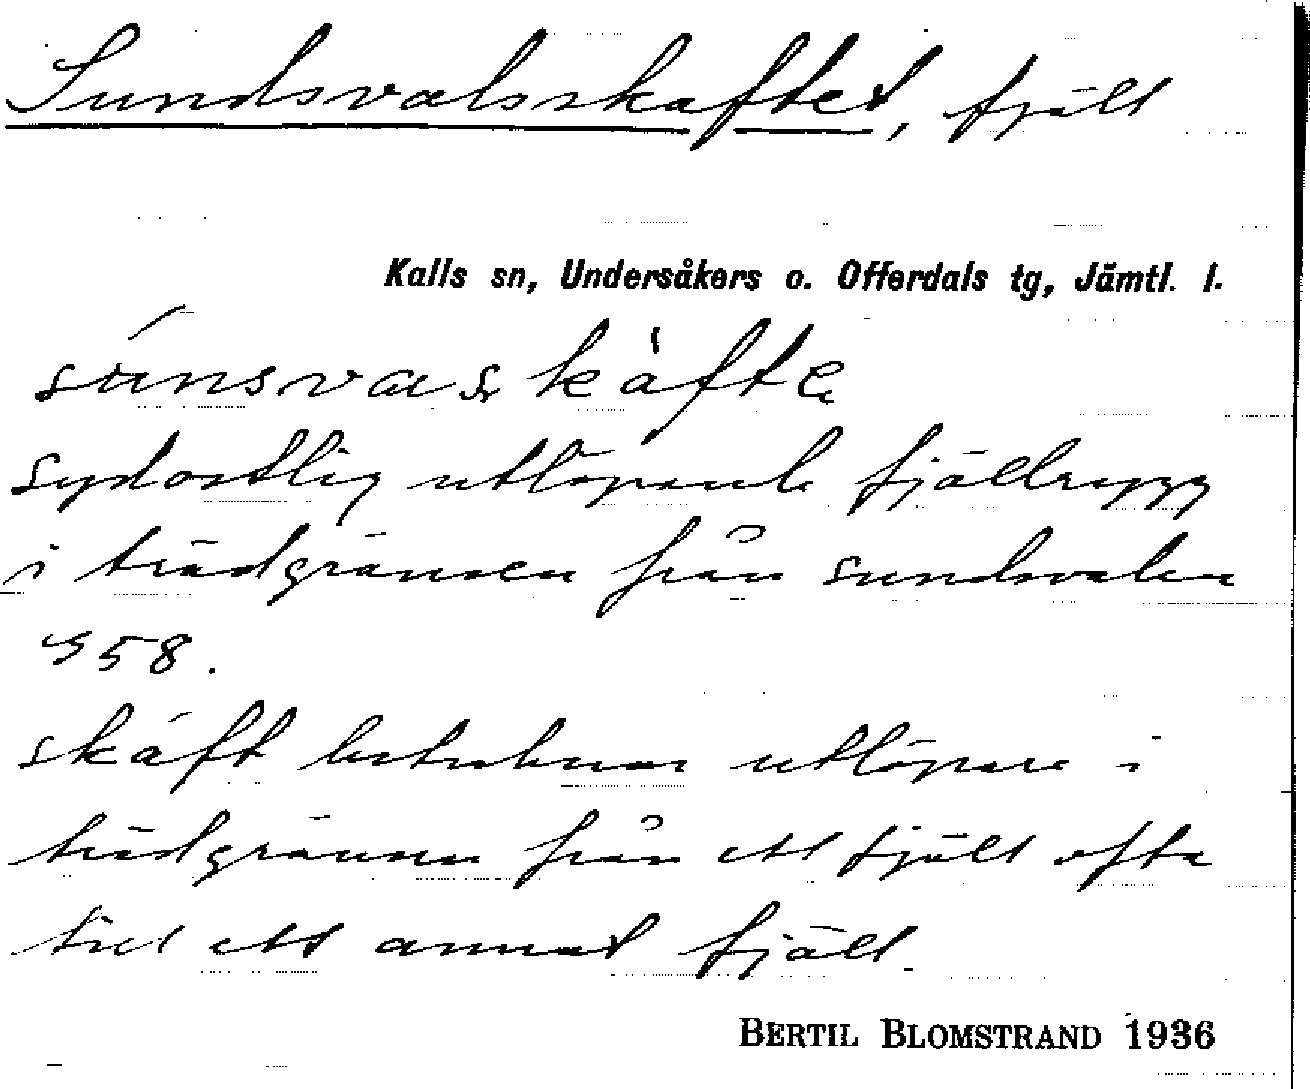 Sundsvalsskaftet, fjäll
Kalls sn, Undersåkers o. Offerdals tg, Jämtl. l.
sydostlig utlöpande fjällrygg
i trädgränsen från Sundsvalen
958.
skaft betecknar utlöpare i
trädgränsen från ett fjäll ofta
till ett annat fjäll.
BERTIL BLOMSTRAND 1936